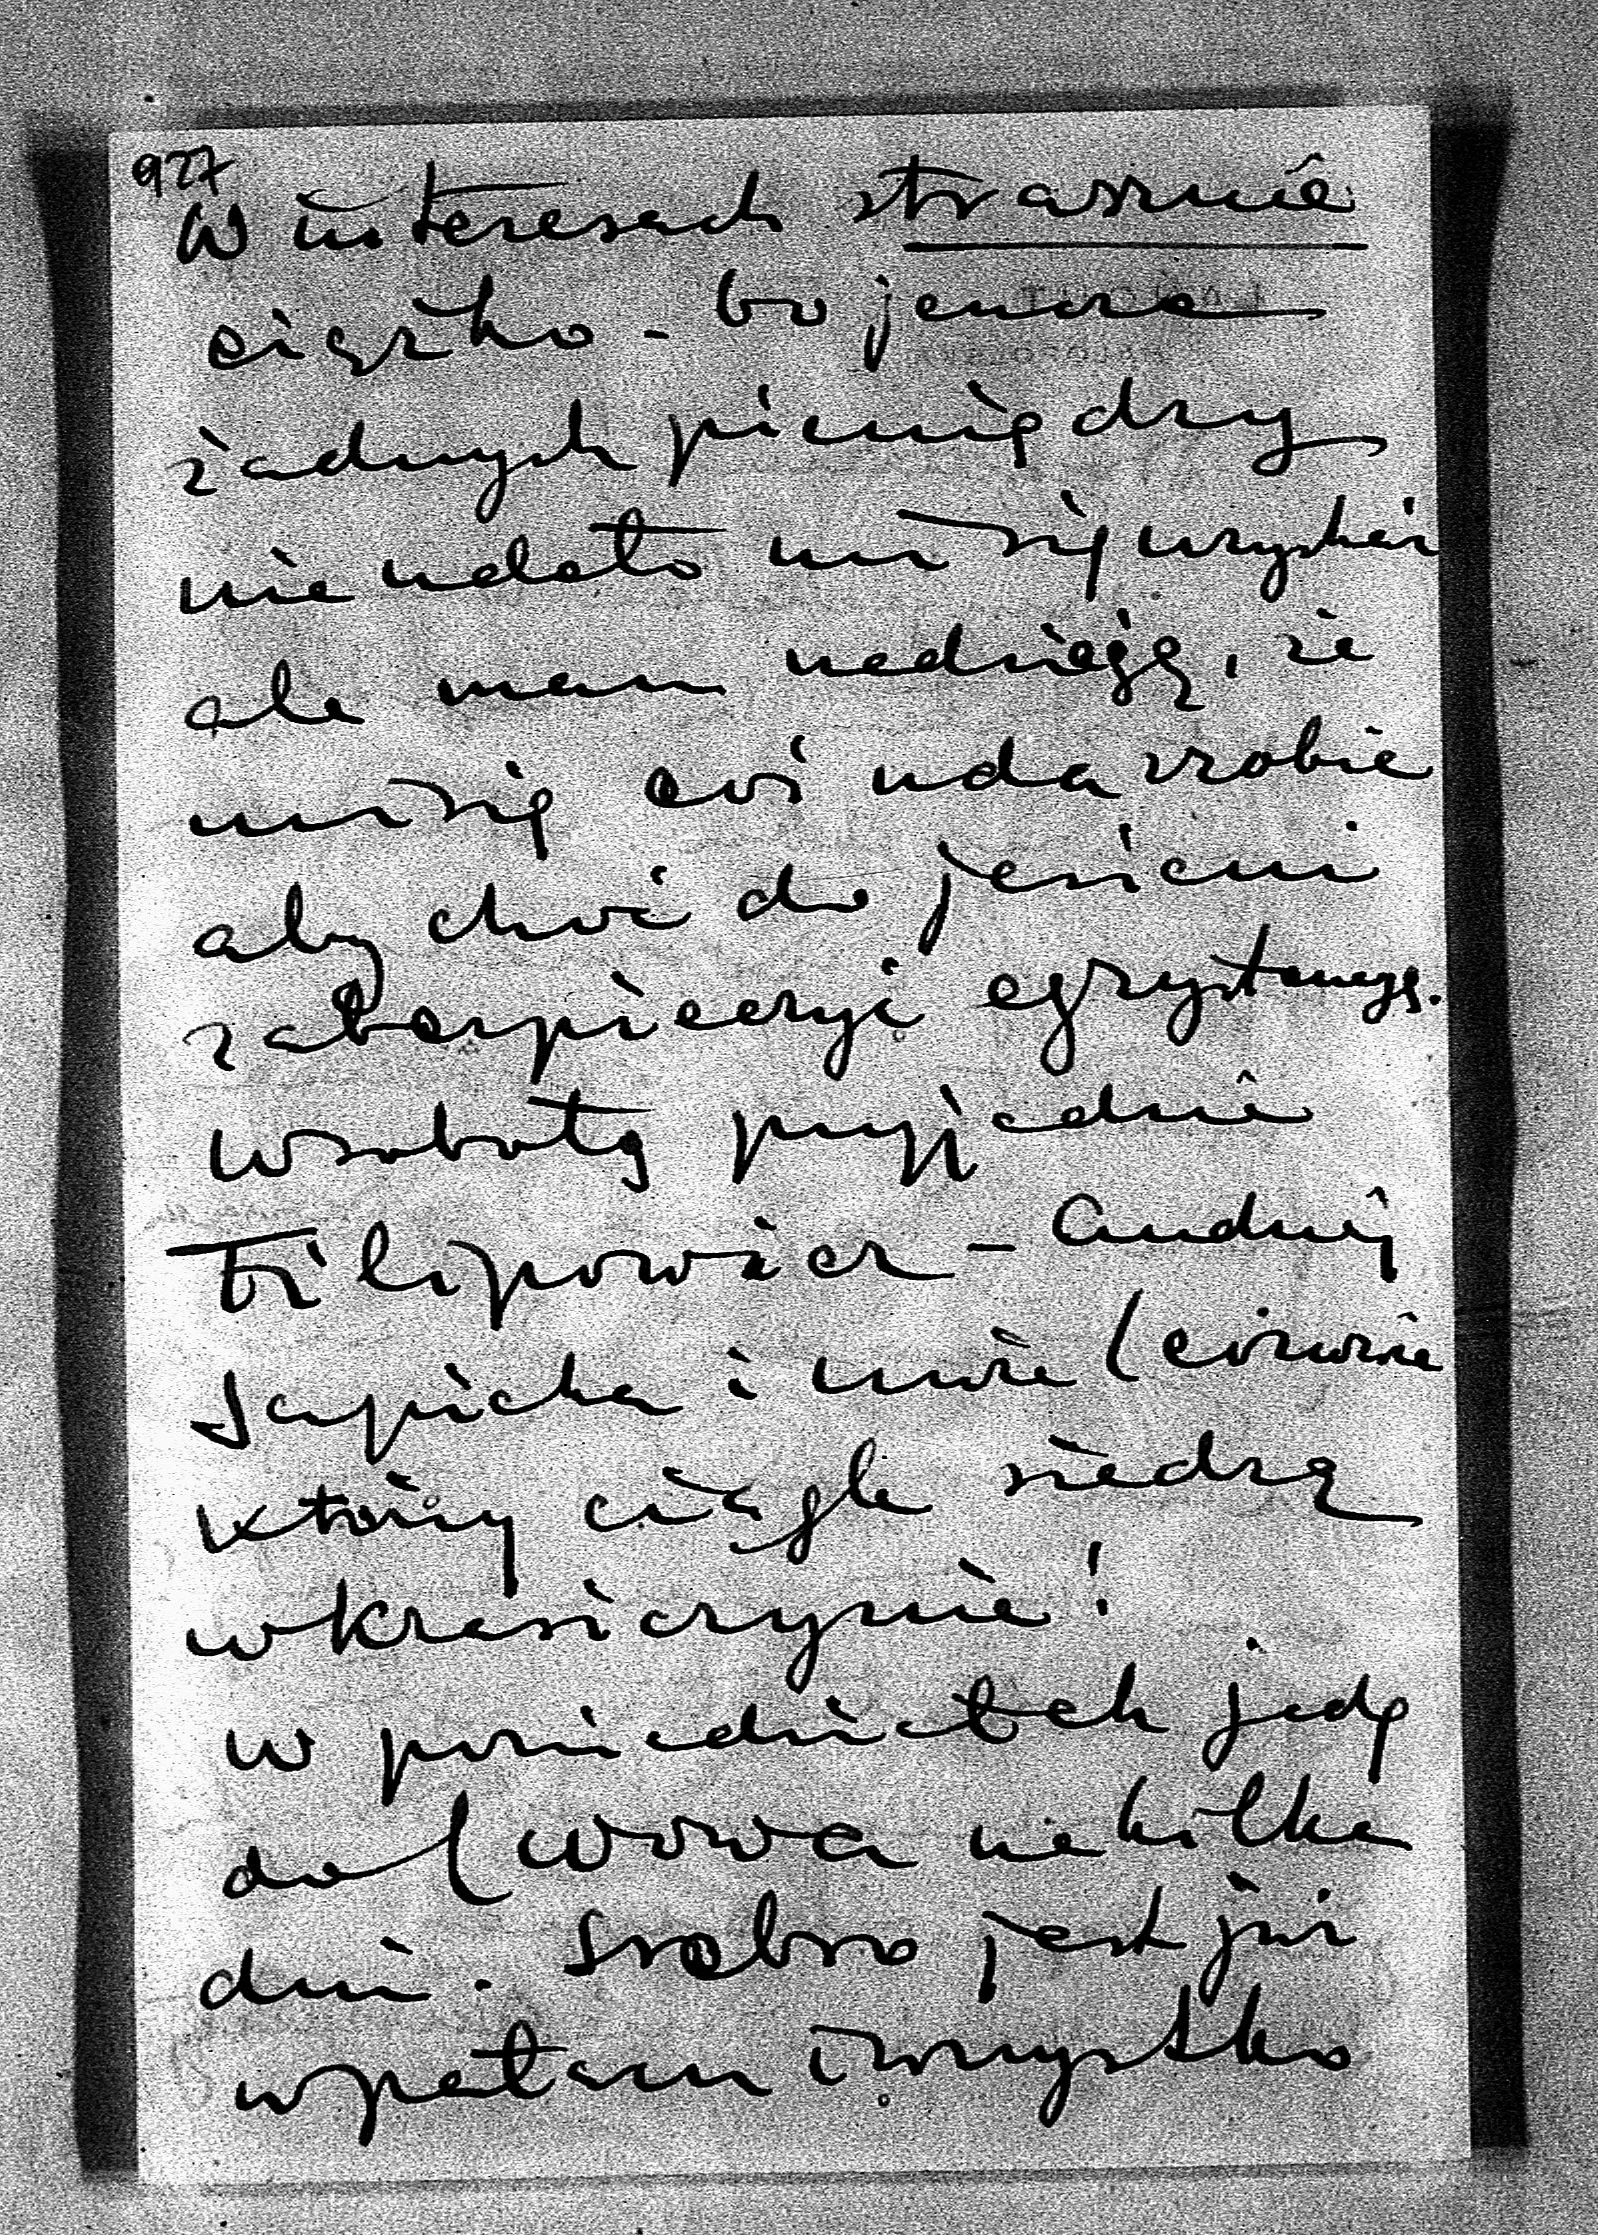 927
W interesach strasznie
ciężko - bo jeszcze
żadnych pieniędzy
nie udało mi się uzyskać
ale mam nadzieję, że
mi się coś uda zrobić
aby choć do jesieni
zabezpieczyć egzystencyę.
W sobotę przyjedzie
Filipowicz - Andrzej
Sapieha i może
którzy ciągle siedzą
w Krasiczynie!
W poniedziałek jadę
do Lwowa na kilka
dni. Srebro jest już
w pałacu i wszystko